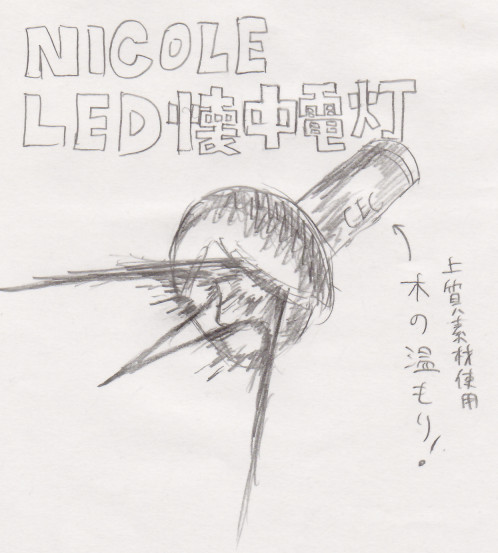 NICOLE
LED懐中電灯
CEC
上質素材使用
木の温もり!